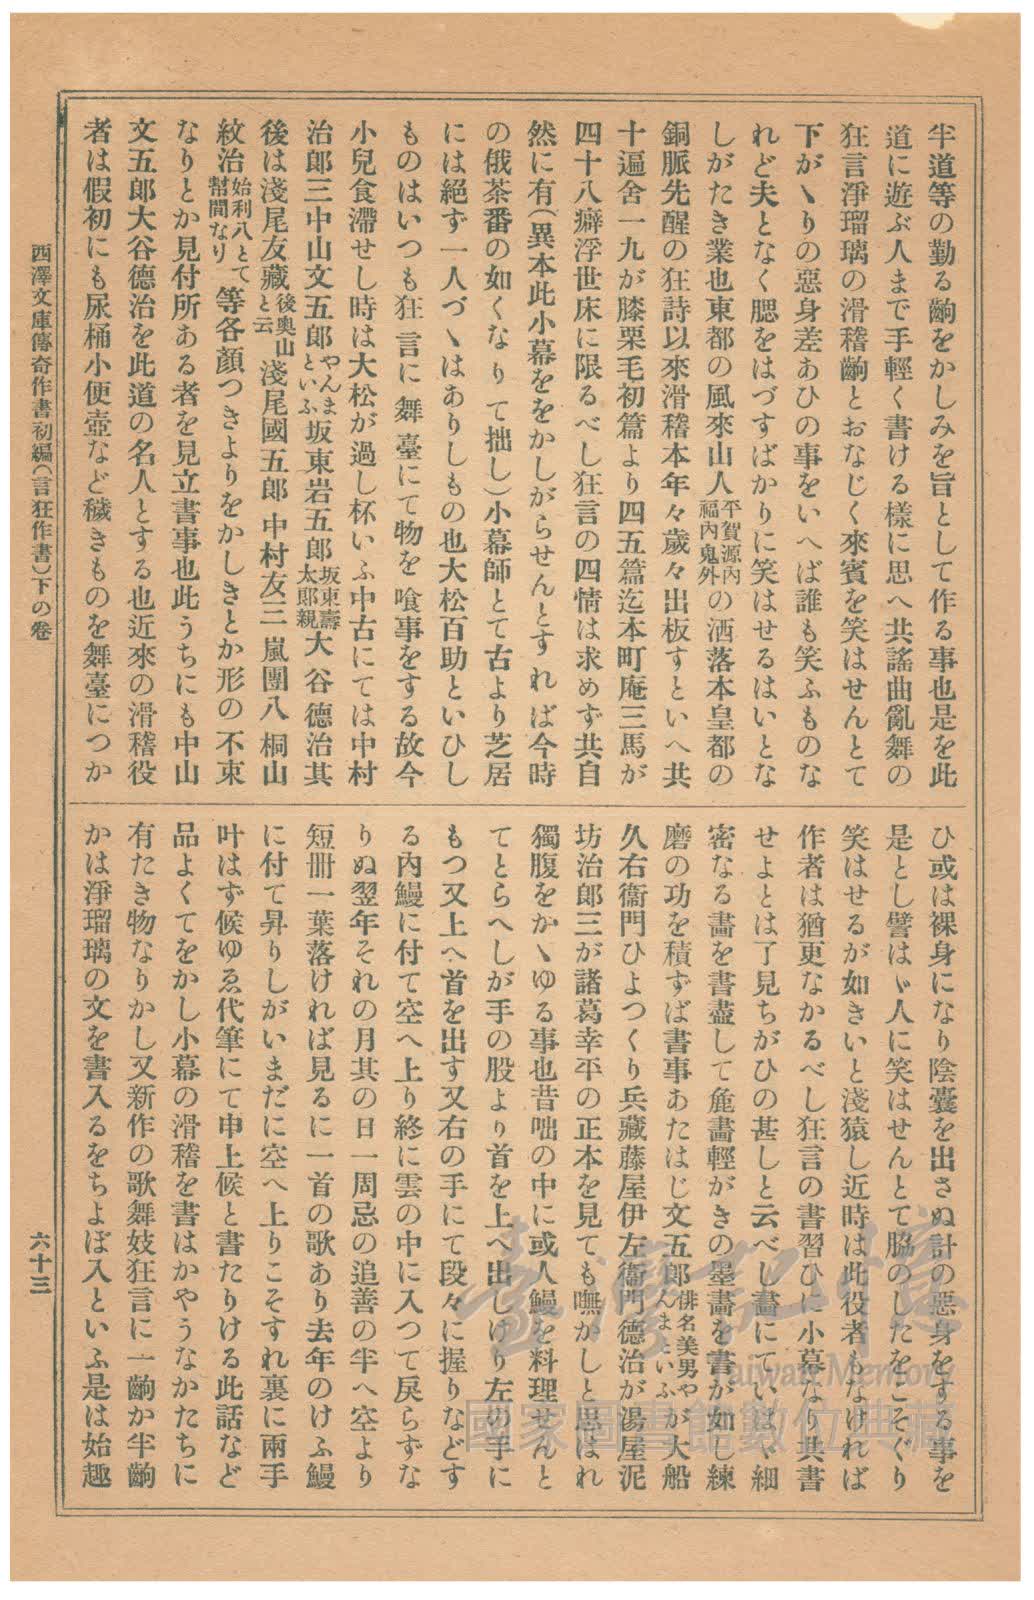 半道等の勤る齣をかしみを旨として作る事也是を此
道に遊ぶ人まで手輕く書ける樣に思へ共謠曲亂舞の
狂言淨瑠璃の滑稽齣とおなじく來賓を笑はせんとて
下がゝりの惡身差あひの事をいへば誰も笑ふものな
れど夫となく腮をはづすばかりに笑はせるはいとな
しがたき業也東都の風來山人平賀源內福內鬼外の洒落本皇都の
銅脈先醒の狂詩以來滑稽本年々歲々出板すといへ共
十遍舍一九が膝栗毛初篇より四五篇迄本町庵三馬が
四十八癖浮世床に限るべし狂言の四情は求めず共自
然に有(異本此小幕ををかしがらせんとすれば今時
の俄茶番の如くなりて拙し)小幕師とて古より芝居
には絕ず一人づゝはありしもの也大松百助といひし
ものはいつも狂言に舞臺にて物を喰事をする故今
小兒食滯せし時は大松が過し杯いふ中古にては中村
治郞三中山文五郞やんまといふ坂東岩五郞坂東壽太郞親大谷德治其
後は淺尾友藏後奧山と云淺尾國五郞中村友三嵐團八桐山
紋治始利八とて幇間なり等各顏つきよりをかしきとか形の不束
なりとか見付所ある者を見立書事也此うちにも中山
文五郞大谷德治を此道の名人とする也近來の滑稽役
者は假初にも尿桶小便壺など穢きものを舞臺につか
ひ或は裸身になり陰囊を出さぬ計の惡身をする事を
是とし譬はゞ人に笑はせんとて脇のしたをこそぐり
笑はせるが如きいと淺猿し近時は此役者もなければ
作者は猶更なかるべし狂言の書習ひに小幕なり共書
せよとは了見ちがひの甚しと云べし畵にていはゞ細
密なる畵を書盡して麁畵輕がきの墨畵を書が如し練
磨の功を積ずば書事あたはじ文五郞俳名美男やんまといふが大船
久右衞門ひよつくり兵藏藤屋伊左衞門德治が湯屋泥
坊治郞三が諸葛幸平の正本を見ても嘸かしと思はれ
獨腹をかゝゆる事也昔咄の中に或人鰻を料理せんと
てとらへしが手の股より首を上へ出しけり左の手に
もつ又上へ首を出す又右の手にて段々に握りなどす
る內鰻に付て空へ上り終に雲の中に入つて戾らずな
りぬ翌年それの月其の日一周忌の追善の半へ空より
短册一葉落ければ見るに一首の歌あり去年のけふ鰻
に付て昇りしがいまだに空へ上りこそすれ裏に兩手
叶はず候ゆゑ代筆にて申上候と書たりける此話など
品よくてをかし小幕の滑稽を書はかやうなかたちに
有たき物なりかし又新作の歌舞妓狂言に一齣か半齣
かは淨瑠璃の文を書入るをちよぼ入といふ是は始趣
西澤文庫傳奇作書初編(言狂作書)下の卷
六十三
臺灣記憶
Taiwan Memory
國家圖書館數位典藏